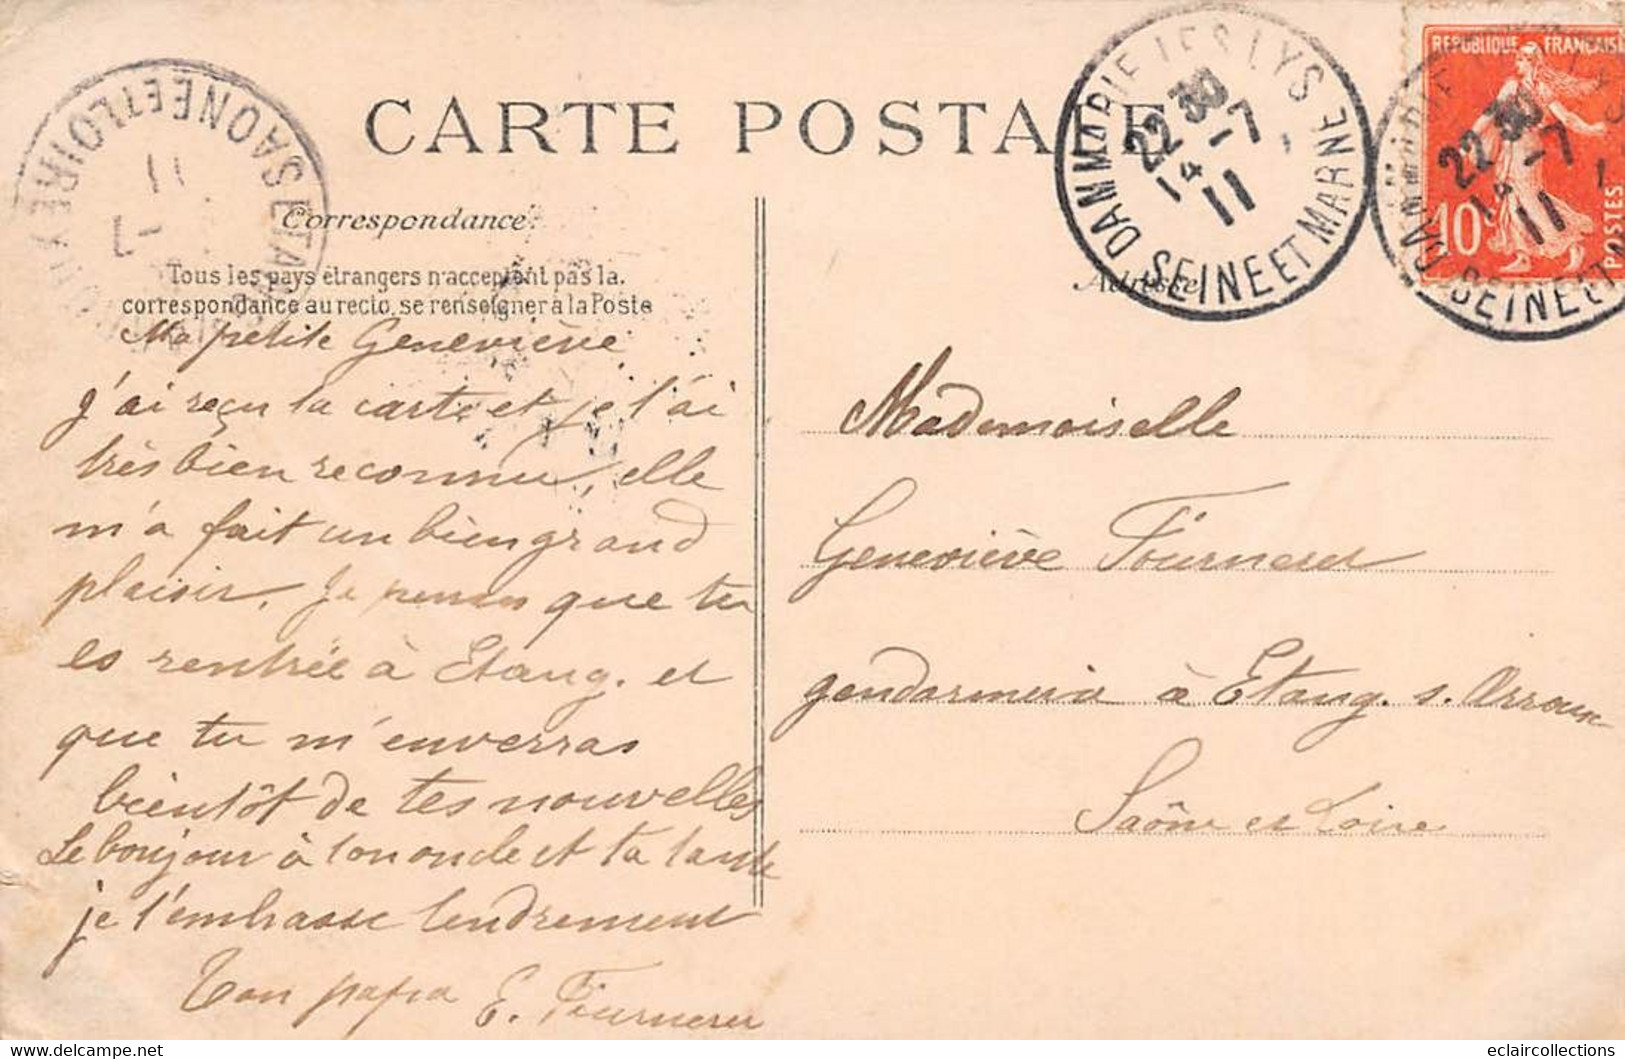 CARTE POSTALE
Correspondance.
Tous les pays étrangers n'acceptent pas la
correspondance au recto, se renseigner à la Poste
Ma petite Geneviève
j'ai reçu ta carte et je l'ai
très bien reconnu, elle
m'a fait un bien grand
plaisir. Je penses que tu
es rentrée à Etang. et
que tu m'enverras
bientôt de tes nouvelles
Le bonjour à ton oncle et ta tante
je t'embrasse tendrement
Ton papa E. Fournerer
SAONE ET LOIRE
-7
11
DAMMARIE LES LYS
22 30
14 -7
11
SEINE ET MARNE
REPUBLIQUE FRANÇAISE
10c
POSTES
DAMMARIE LES LYS
22 30
14 -7
11
SEINE ET MARNE
Adresse
Mademoiselle
Geneviève Fourneret
gendarmerie à Etang. s. Arroux
Saône et Loire
www.delcampe.net
eclaircollections